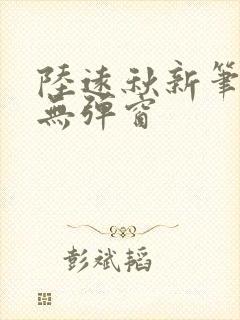 陸遠秋新筆
無彈窗
彭斌韬